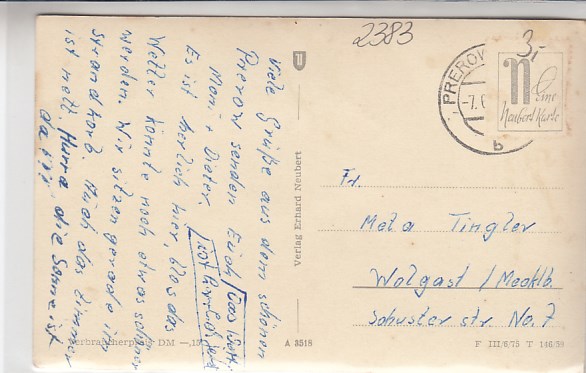 2383
3,-
Viele Grüße aus dem schönen
Prerow senden Euch
Moni + Dieter.
Es ist herlich hier, blos das
Wetter könnte noch etwas schöner
werden. Wir sitzen gerade im
Strandkorb. Auch das Zimmer
ist nett. Hurra die Sonne ist
da!!!
Verbraucherpreis DM —,15
A 3518
Verlag Erhard Neubert
PREROW
-7.6
b
n
Eine
Neubert Karte
Fr.
Meta Tingler
Wolgast / Mecklb.
Schusterstr No. 7
F III/6/75 T 146/59